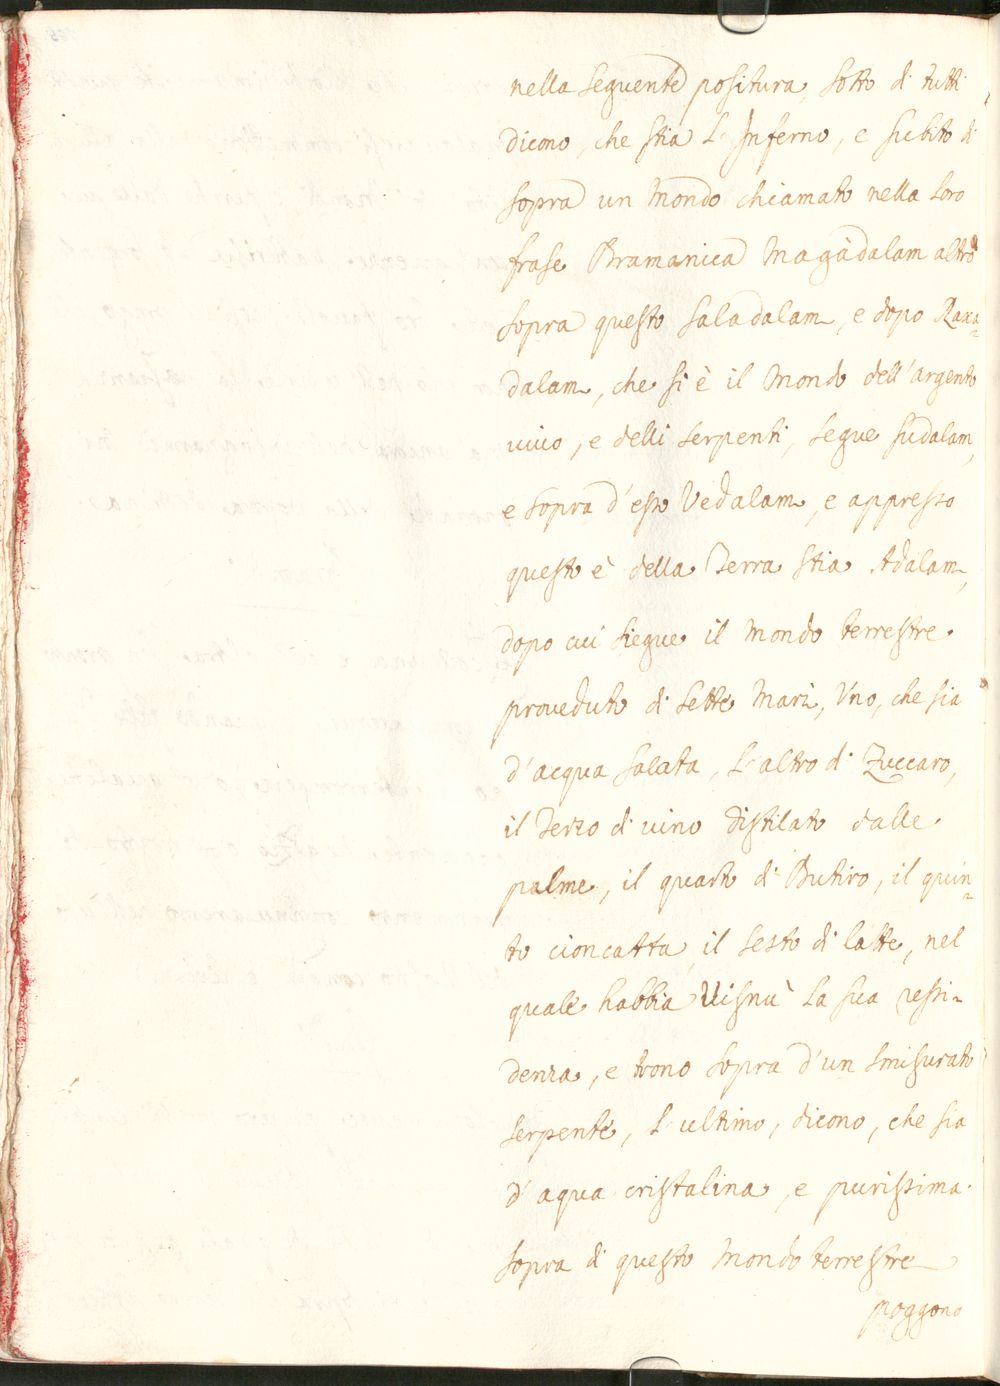 nella seguente positura, sotto di tutti
dicono, che stia L'Inferno, e subito di
sopra un Mondo chiamato nella loro
frase Bramanica Magàdalam altro
sopra questo Saladalam, e dopo Raxa-
dalam, che si è il Mondo dell'argento
vivo, e delli serpenti, segue Sudalam,
e sopra d'esso Vedalam, e appresso
questo è della Terra stia Adalam,
dopo cui siegue il Mondo terrestre
proveduto di sette Mari, Uno, che sia
d'acqua salata, L'altro di Zuccaro,
il Terzo di vino distilato dalle
palme, il quarto di Butiro, il quin-
to cioncatta, il sesto di latte, nel
quale habbia Visnù la sua ressi-
denza, e trono sopra d'un smisurato
serpente, L'ultimo, dicono, che sia
d'aqua cristalina, e purissima.
sopra di questo Mondo terrestre
poggono